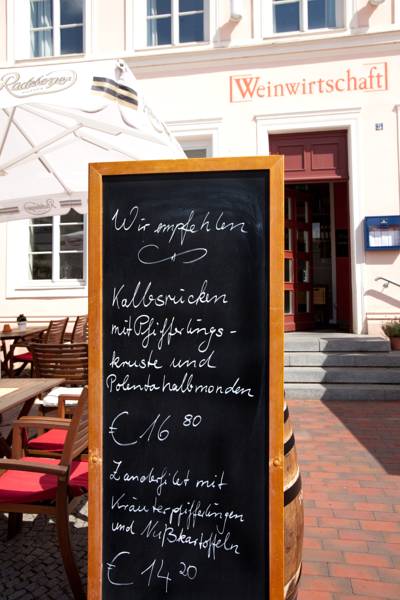 Radeberger
Weinwirtschaft
Wir empfehlen
Kalbsrücken
mit Pfifferlings-
kruste und
Polentahalbmonden
€ 16 80
Zanderfilet mit
Kräuterpfifferlingen
und Nußkartoffeln
€ 14 20